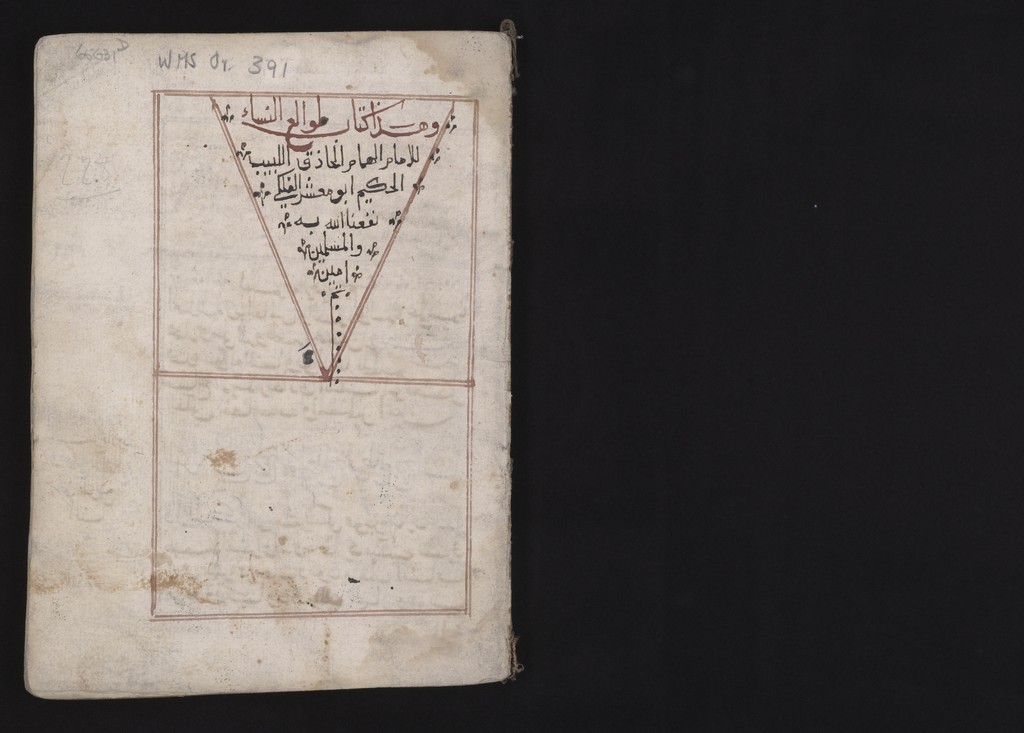 66631D
WMS Or. 391
وهذا كتاب طوالع النساء
للامام الهمام الحاذق اللبيب
الحكيم ابو معشر الفلكي
نفعنا الله به
والمسلمين
امين
تم